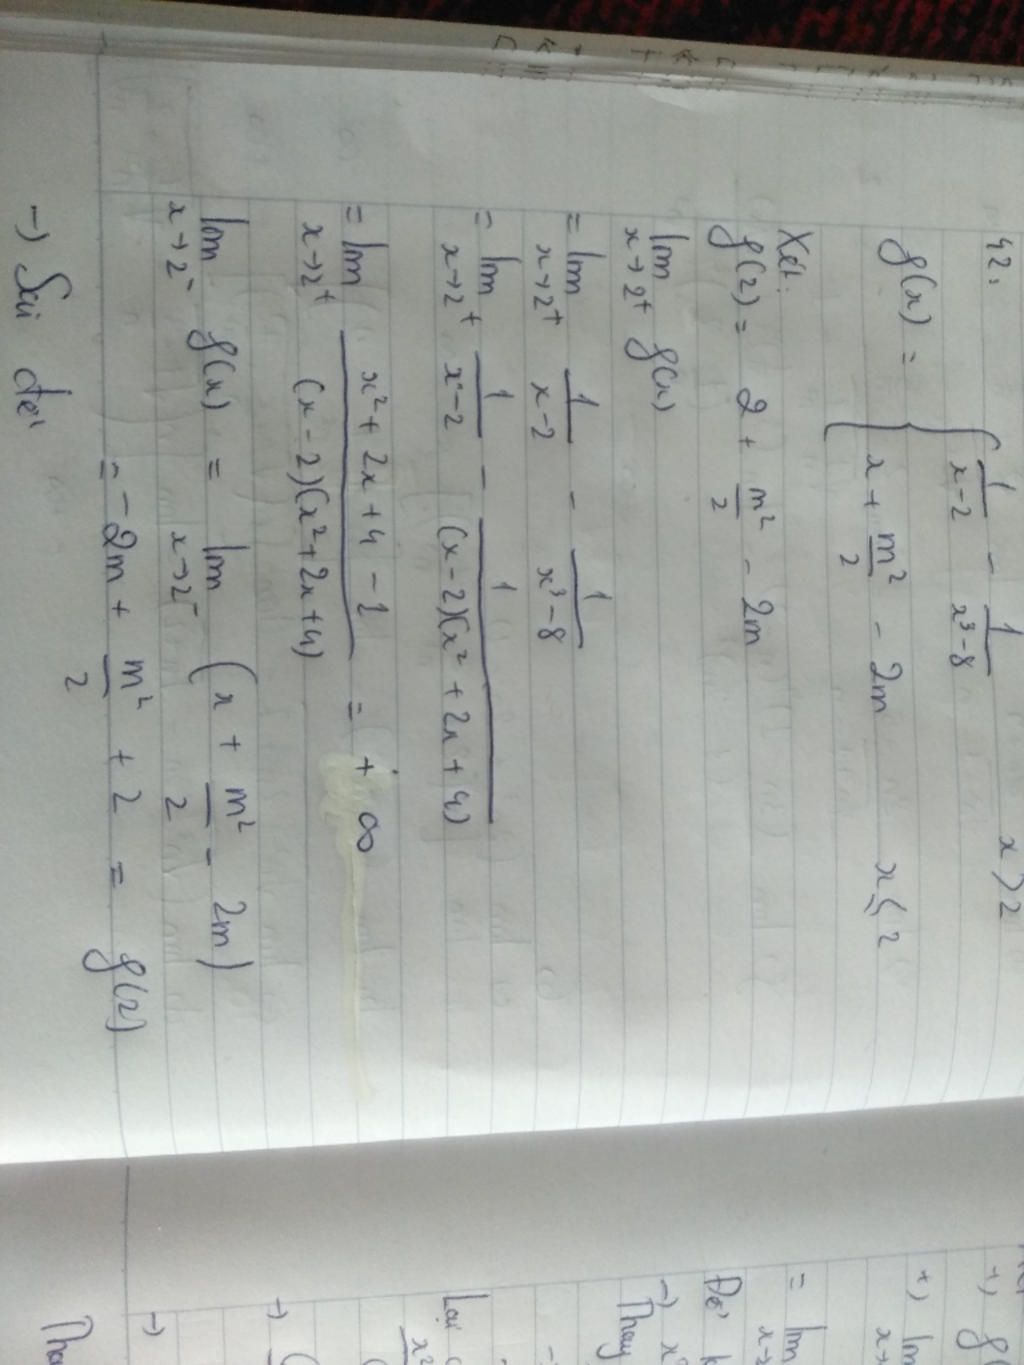 42:
f(x) = { 1/(x-2) - 1/(x³-8) x > 2
x + m²/2 - 2m x ≤ 2
Xét:
f(2) = 2 + m²/2 - 2m
lim x→2⁺ f(x)
= lim x→2⁺ 1/(x-2) - 1/(x³-8)
= lim x→2⁺ 1/(x-2) - 1/((x-2)(x²+2x+4))
= lim x→2⁺ (x²+2x+4-1)/((x-2)(x²+2x+4)) = +∞
lim x→2⁻ f(x) = lim x→2⁻ (x + m²/2 - 2m)
= -2m + m²/2 + 2 = f(2)
→) Sai đề
+) f(
+) lim x→
= lim x→2
Để k
→) x²
Thay
Lại
x²
→)
→)
Tha